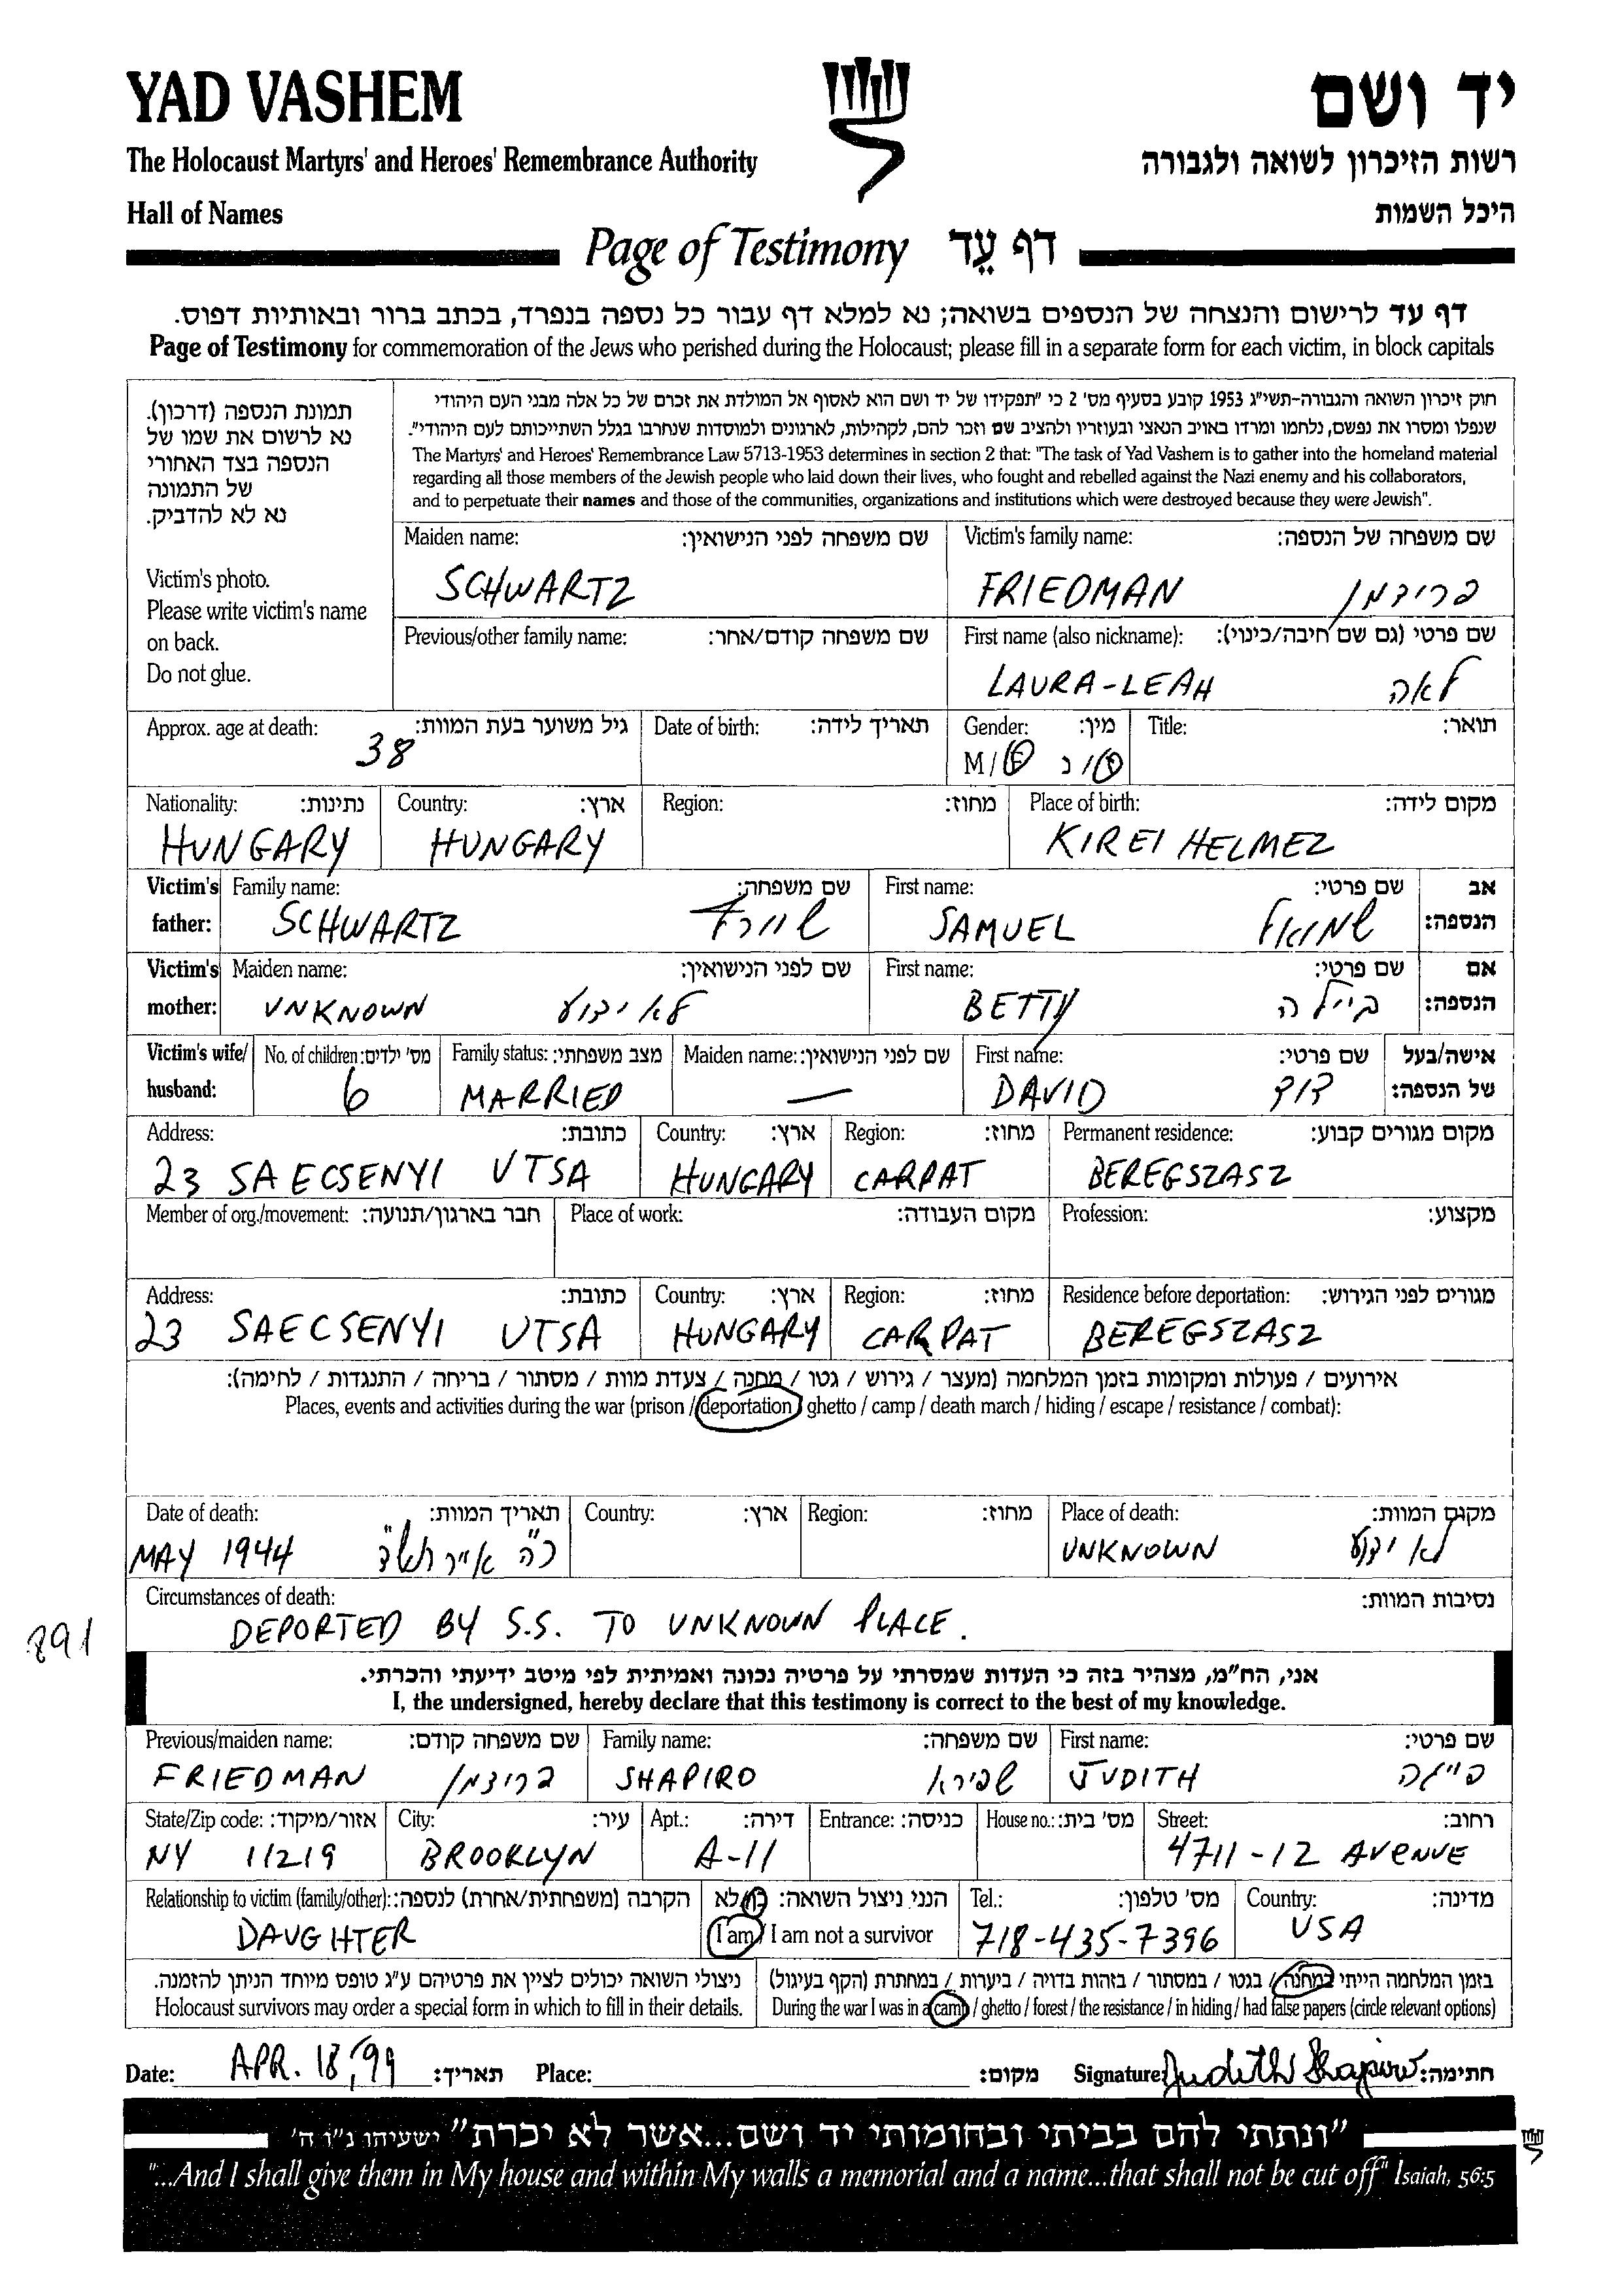 YAD VASHEM
יד ושם
The Holocaust Martyrs' and Heroes' Remembrance Authority
רשות הזיכרון לשואה ולגבורה
Hall of Names
היכל השמות
Page of Testimony דף עֵד
דף עד לרישום והנצחה של הנספים בשואה; נא למלא דף עבור כל נספה בנפרד, בכתב ברור ובאותיות דפוס.
Page of Testimony for commemoration of the Jews who perished during the Holocaust; please fill in a separate form for each victim, in block capitals
תמונת הנספה (דרכון).
נא לרשום את שמו של
הנספה בצד האחורי
של התמונה
נא לא להדביק.
Victim's photo.
Please write victim's name
on back.
Do not glue.
חוק זיכרון השואה והגבורה-תשי״ג 1953 קובע בסעיף מס' 2 כי "תפקידו של יד ושם הוא לאסוף אל המולדת את זכרם של כל אלה מבני העם היהודי
שנפלו ומסרו את נפשם, נלחמו ומרדו באויב הנאצי ובעוזריו ולהציב שם וזכר להם, לקהילות, לארגונים ולמוסדות שנחרבו בגלל השתייכותם לעם היהודי".
The Martyrs' and Heroes' Remembrance Law 5713-1953 determines in section 2 that: "The task of Yad Vashem is to gather into the homeland material
regarding all those members of the Jewish people who laid down their lives, who fought and rebelled against the Nazi enemy and his collaborators,
and to perpetuate their names and those of the communities, organizations and institutions which were destroyed because they were Jewish".
Maiden name: שם משפחה לפני הנישואין: Victim's family name: שם משפחה של הנספה:
SCHWARTZ FRIEDMAN פרידמן
Previous/other family name: שם משפחה קודם/אחר: First name (also nickname): שם פרטי (גם שם חיבה/כינוי):
LAURA-LEAH לאה
Approx. age at death: גיל משוער בעת המוות: Date of birth: תאריך לידה: Gender: מין: Title: תואר:
38 M/F ז/נ
Nationality: נתינות: Country: ארץ: Region: מחוז: Place of birth: מקום לידה:
HUNGARY HUNGARY KIREI HELMEZ
Victim's father: Family name: שם משפחה: First name: שם פרטי: אב הנספה:
SCHWARTZ שוורץ SAMUEL שמואל
Victim's mother: Maiden name: שם לפני הנישואין: First name: שם פרטי: אם הנספה:
UNKNOWN לא ידוע BETTY ביילה
Victim's wife/husband: No. of children: מס' ילדים: Family status: מצב משפחתי: Maiden name: שם לפני הנישואין: First name: שם פרטי: אישה/בעל של הנספה:
6 MARRIED — DAVID דוד
Address: כתובת: Country: ארץ: Region: מחוז: Permanent residence: מקום מגורים קבוע:
23 SAECSENYI UTSA HUNGARY CARPAT BEREGSZASZ
Member of org./movement: חבר בארגון/תנועה: Place of work: מקום העבודה: Profession: מקצוע:
Address: כתובת: Country: ארץ: Region: מחוז: Residence before deportation: מגורים לפני הגירוש:
23 SAECSENYI UTSA HUNGARY CARPAT BEREGSZASZ
אירועים / פעולות ומקומות בזמן המלחמה (מעצר / גירוש / גטו / מחנה / צעדת מוות / מסתור / בריחה / התנגדות / לחימה):
Places, events and activities during the war (prison / deportation / ghetto / camp / death march / hiding / escape / resistance / combat):
Date of death: תאריך המוות: Country: ארץ: Region: מחוז: Place of death: מקום המוות:
MAY 1944 כ"ה אייר תש"ד UNKNOWN לא ידוע
Circumstances of death: נסיבות המוות:
DEPORTED BY S.S. TO UNKNOWN PLACE.
891
אני, הח״מ, מצהיר בזה כי העדות שמסרתי על פרטיה נכונה ואמיתית לפי מיטב ידיעתי והכרתי.
I, the undersigned, hereby declare that this testimony is correct to the best of my knowledge.
Previous/maiden name: שם משפחה קודם: Family name: שם משפחה: First name: שם פרטי:
FRIEDMAN פרידמן SHAPIRO שפירא JUDITH פייגה
State/Zip code: אזור/מיקוד: City: עיר: Apt.: דירה: Entrance: כניסה: House no.: מס' בית: Street: רחוב:
NY 11219 BROOKLYN A-11 4711-12 AVENUE
Relationship to victim (family/other): הקרבה (משפחתית/אחרת) לנספה: הנני ניצול השואה: כן/לא Tel.: מס' טלפון: Country: מדינה:
DAUGHTER I am / I am not a survivor 718-435-7396 USA
ניצולי השואה יכולים לציין את פרטיהם ע״ג טופס מיוחד הניתן להזמנה.
Holocaust survivors may order a special form in which to fill in their details.
בזמן המלחמה הייתי במחנה / בגטו / במסתור / בזהות בדויה / ביערות / במחתרת (הקף בעיגול)
During the war I was in a camp / ghetto / forest / the resistance / in hiding / had false papers (circle relevant options)
Date: APR. 18, 99 תאריך: Place: מקום: Signature: Judith Shapiro חתימה:
"ונתתי להם בביתי ובחומותי יד ושם...אשר לא יכרת" ישעיהו נ״ו ה'
"...And I shall give them in My house and within My walls a memorial and a name...that shall not be cut off" Isaiah, 56:5